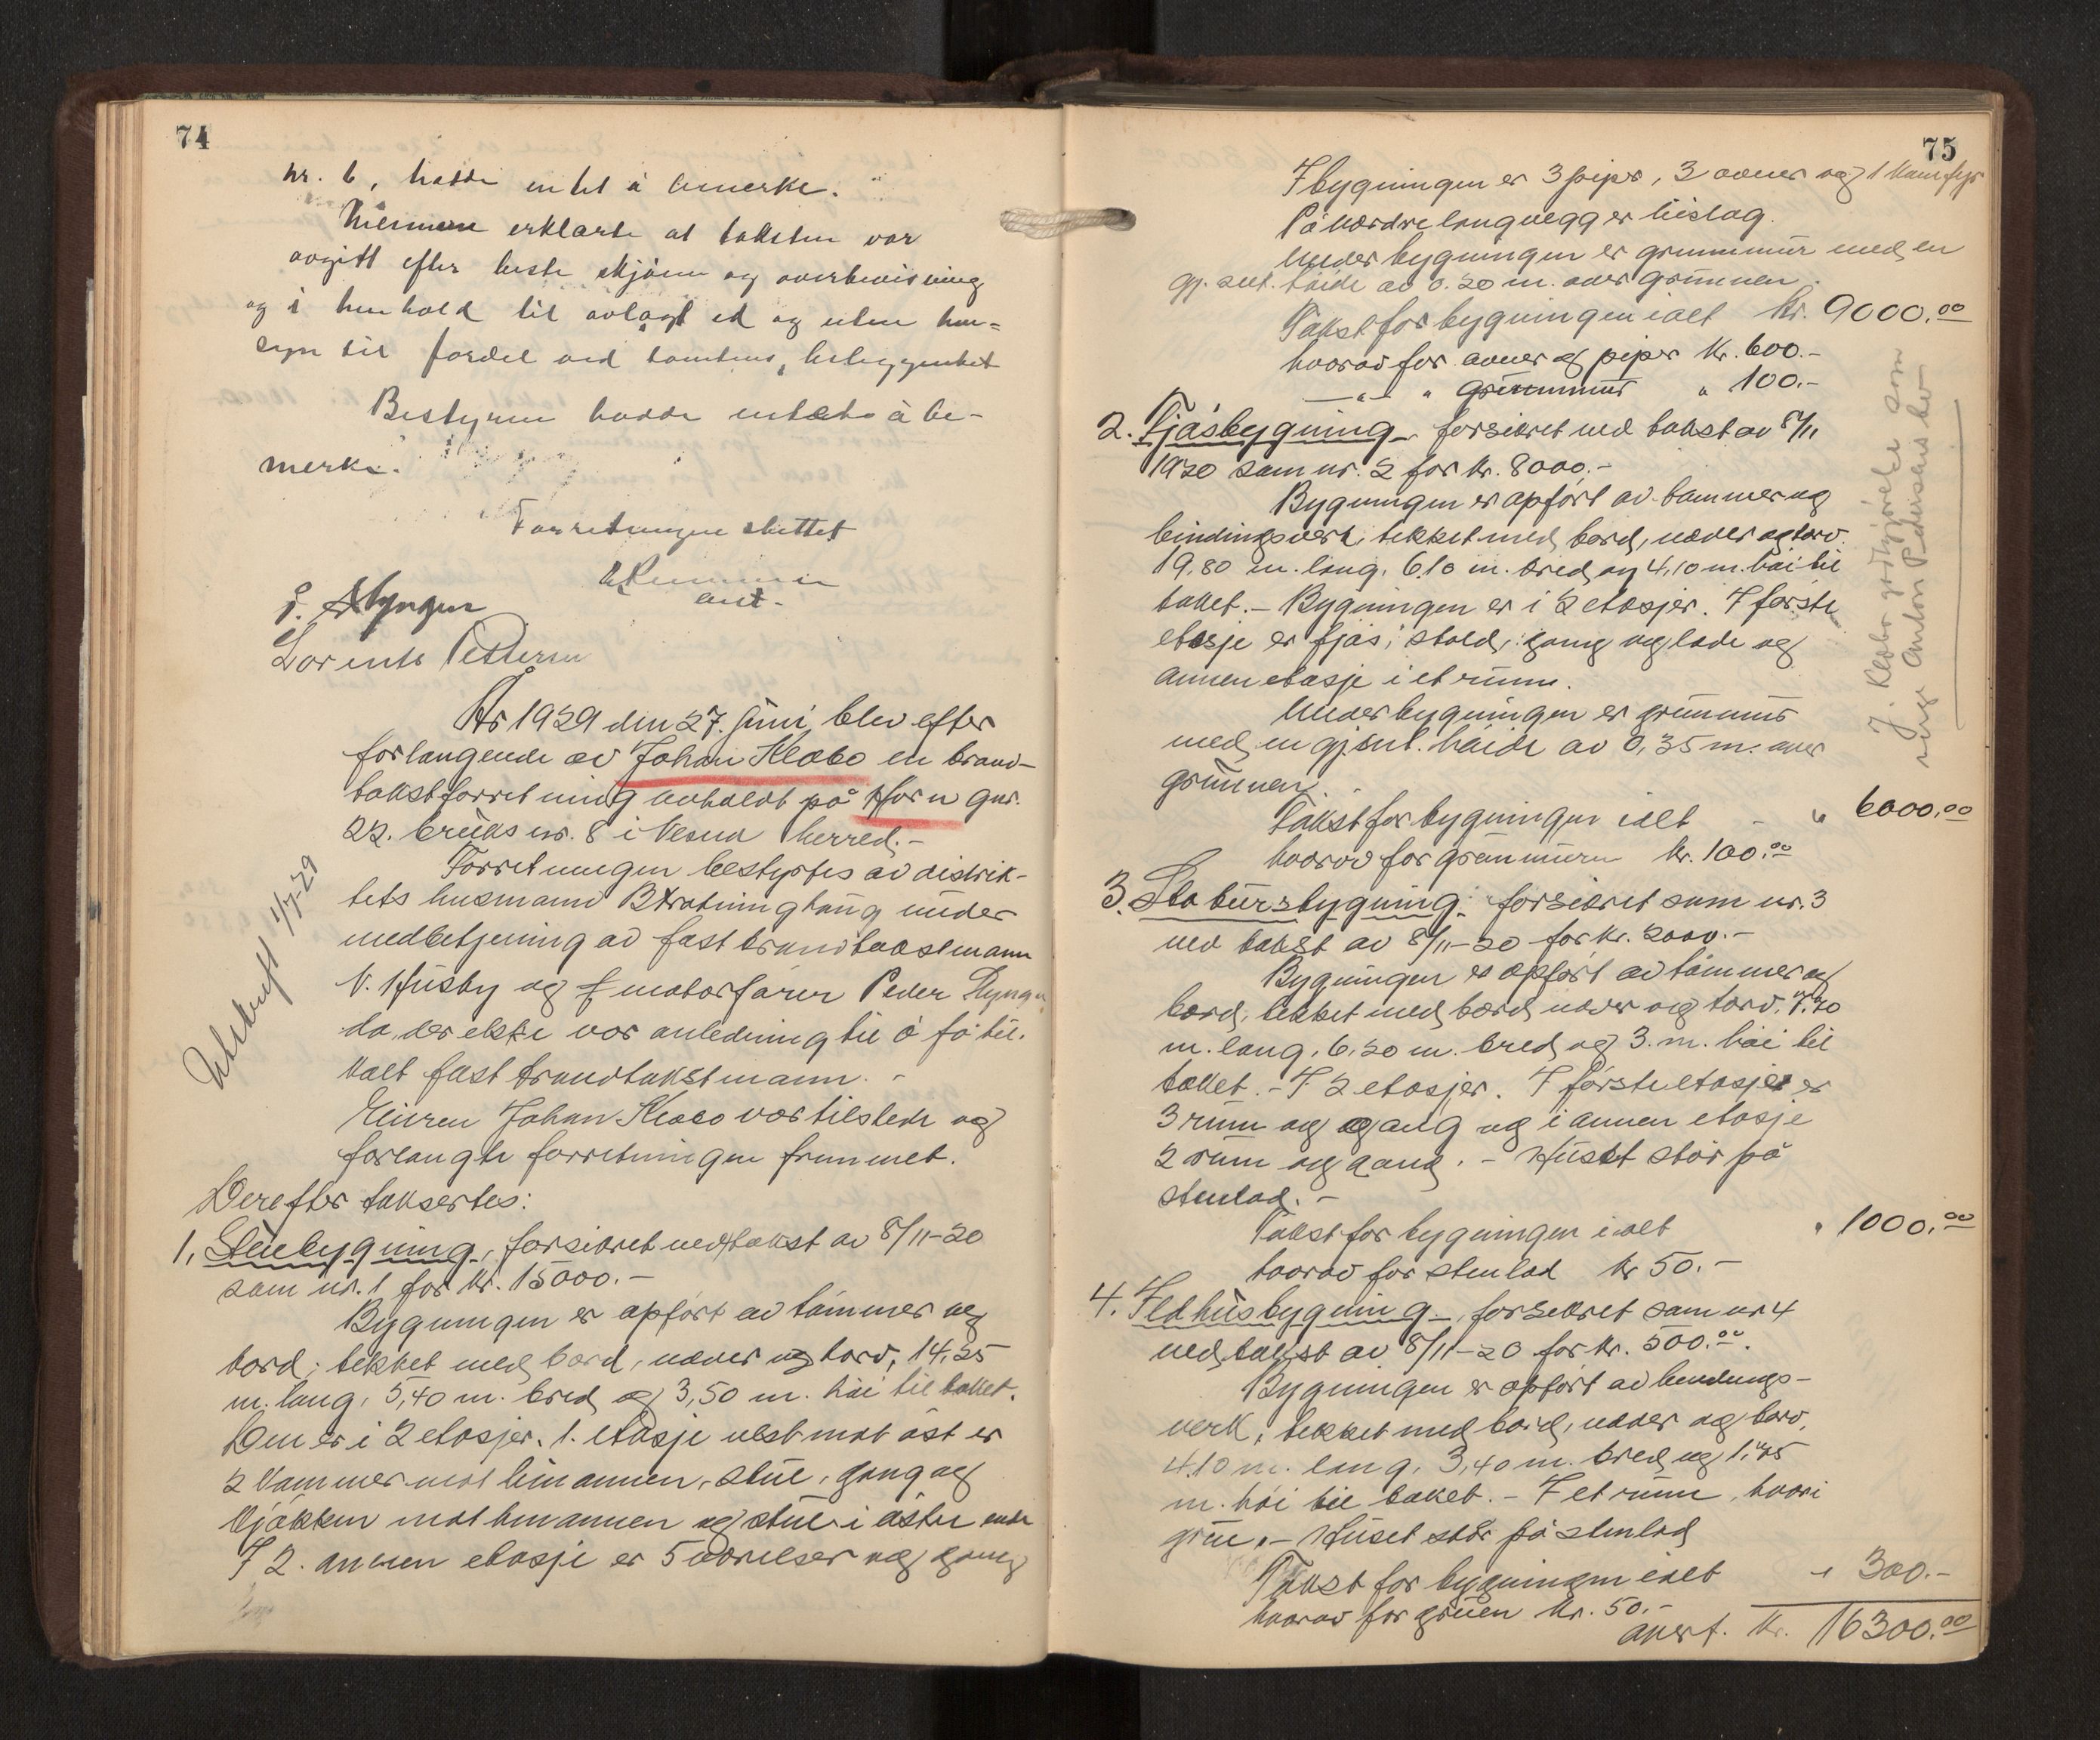 74
nr. 6, hadde intet å bemerke.
Mennene erklærte at taksten var
avgitt efter beste skjønn og overbevisning
og i henhold til avlagt ed og uten hen-
syn til fordel ved tomtens beliggenhet
Bestyreren hadde intet å be-
merke.
Forretningen sluttet
P. Hyngen
Lorents Pettersen
År 1929 den 27. juni blev efter
forlangende av Johan Klobo en brand-
takstforretning avholdt på Horn gnr.
22. bruks nr. 8 i Vesna herred.-
Forretningen bestyrtes av distrik-
tets husmann B Kratning haug under
medbetjening av fast brandtakstmann
N. Husby og f motorfører Peder Hyngen
da der ekke var anledning til å få til-
kalt fast brandtakstmann. -
Eieren Johan Klobo var tilstede og
forlangte forretningen fremmet.
Derefter taksertes:
1. Stuebygning, forsikret ved takst av 8/11-20
som nr. 1 for kr. 15000.-
Bygningen er opført av tømmer og
bord; tekket med bord, never og torv, 14,25
m. lang, 5,40 m. bred og 3,50 m. høi til taket.
Den er i 2 etasjer. 1. etasje vest mot øst er
2 kammer mot hinannen, stue, gang og
kjøkken mot hinannen og stue i østre ende
I 2. annen etasje er 5 værelser og gang
Utskrift 1/7-29
75
I bygningen er 3 piper, 3 ovner og 1 komfyr
På nordre langvegg er bislag.
Under bygningen er grunnmur med en
gj. snt. høide av 0.20 m. over grunnen.
Takst for bygningen ialt kr. 9000.00
hvorav for ovner og piper kr. 600.-
—"— " grunnmur " 100.-
2. Fjøsbygning, forsikret ved takst av 8/11
1920 som nr. 2 for kr. 8000.-
Bygningen er opført av tømmer og
bindingsverk, tekket med bord, never og torv.
19,80 m. lang, 6.10 m. bred og 4,10 m. høi til
taket. - Bygningen er i 2 etasjer. I første
etasje er fjøs, stald, gang og lade og
annen etasje i et rum.
Under bygningen er grunnmur
med en gj.snt. høide av 0,35 m. over
grunnen.
Takst for bygningen ialt - " 6000.00
hvorav for grunnmuren kr. 100.00
3. Stabursbygning. forsikret som nr. 3
ved takst av 8/11-20 for kr. 2000.-
Bygningen er opført av tømmer og
bord, tekket med bord, never og torv. 7.20
m. lang, 6,20 m. bred og 3. m. høi til
taket. - I 2 etasjer. I første etasje er
3 rum og gang og i annen etasje
2 rum og gang. - Huset står på
stenlad. -
Takst for bygningen ialt " 1000.00
hvorav for stenlad kr 50.-
4. Ildhusbygning, forsikret som nr 4
ved takst av 8/11-20 for kr. 500.00.
Bygningen er opført av bindings-
verk, tekket med bord, never og torv,
4.10 m. lang, 3,40 m. bred og 1,75
m. høi til taket. - I et rum, hvori
grue. - Huset står på stenlad
Takst for bygningen ialt " 300.-
hvorav for gruen kr. 50.-
overf. kr. 16300.00
J. Klobo godtgjorde som
Anton Pedersens